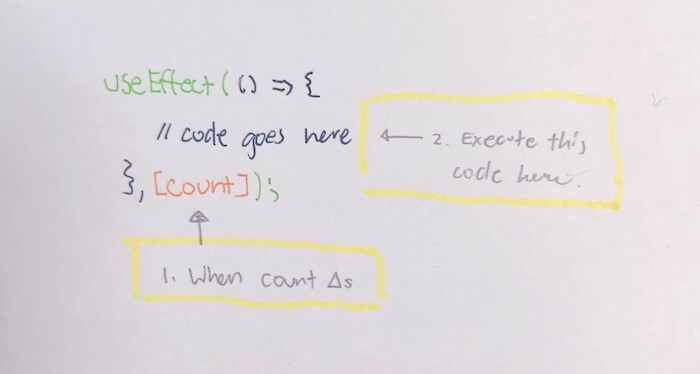 useEffect(() => {
// code goes here
}, [count]);
2. Execute this
code here.
1. When count Δs